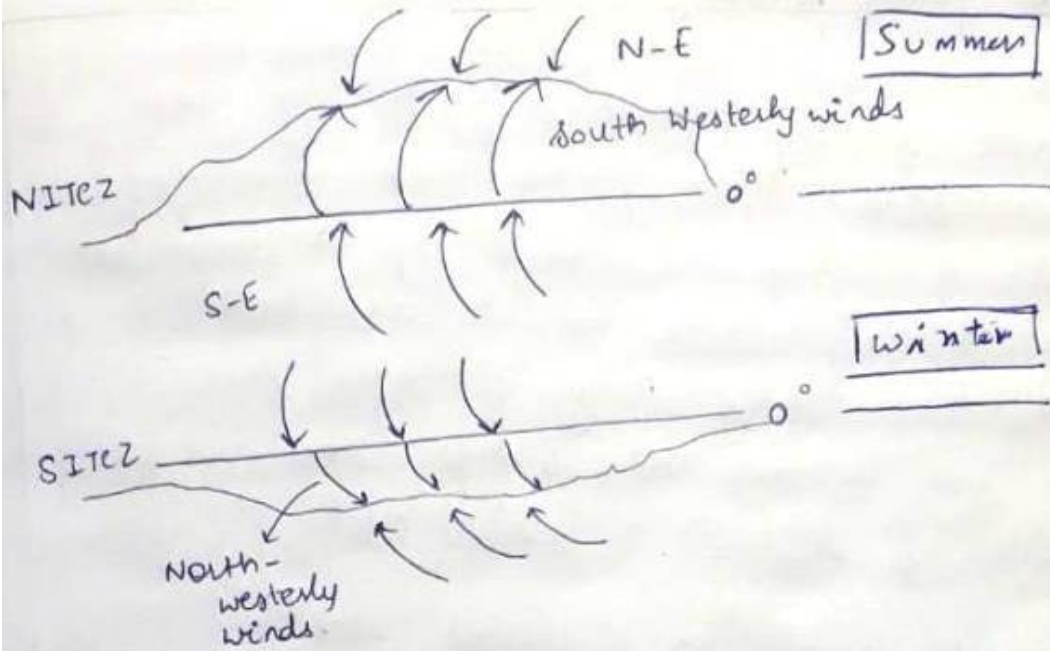 N-E
Summer
South Westerly winds
NITCZ
0°
S-E
Winter
0°
SITCZ
North-
westerly
winds.